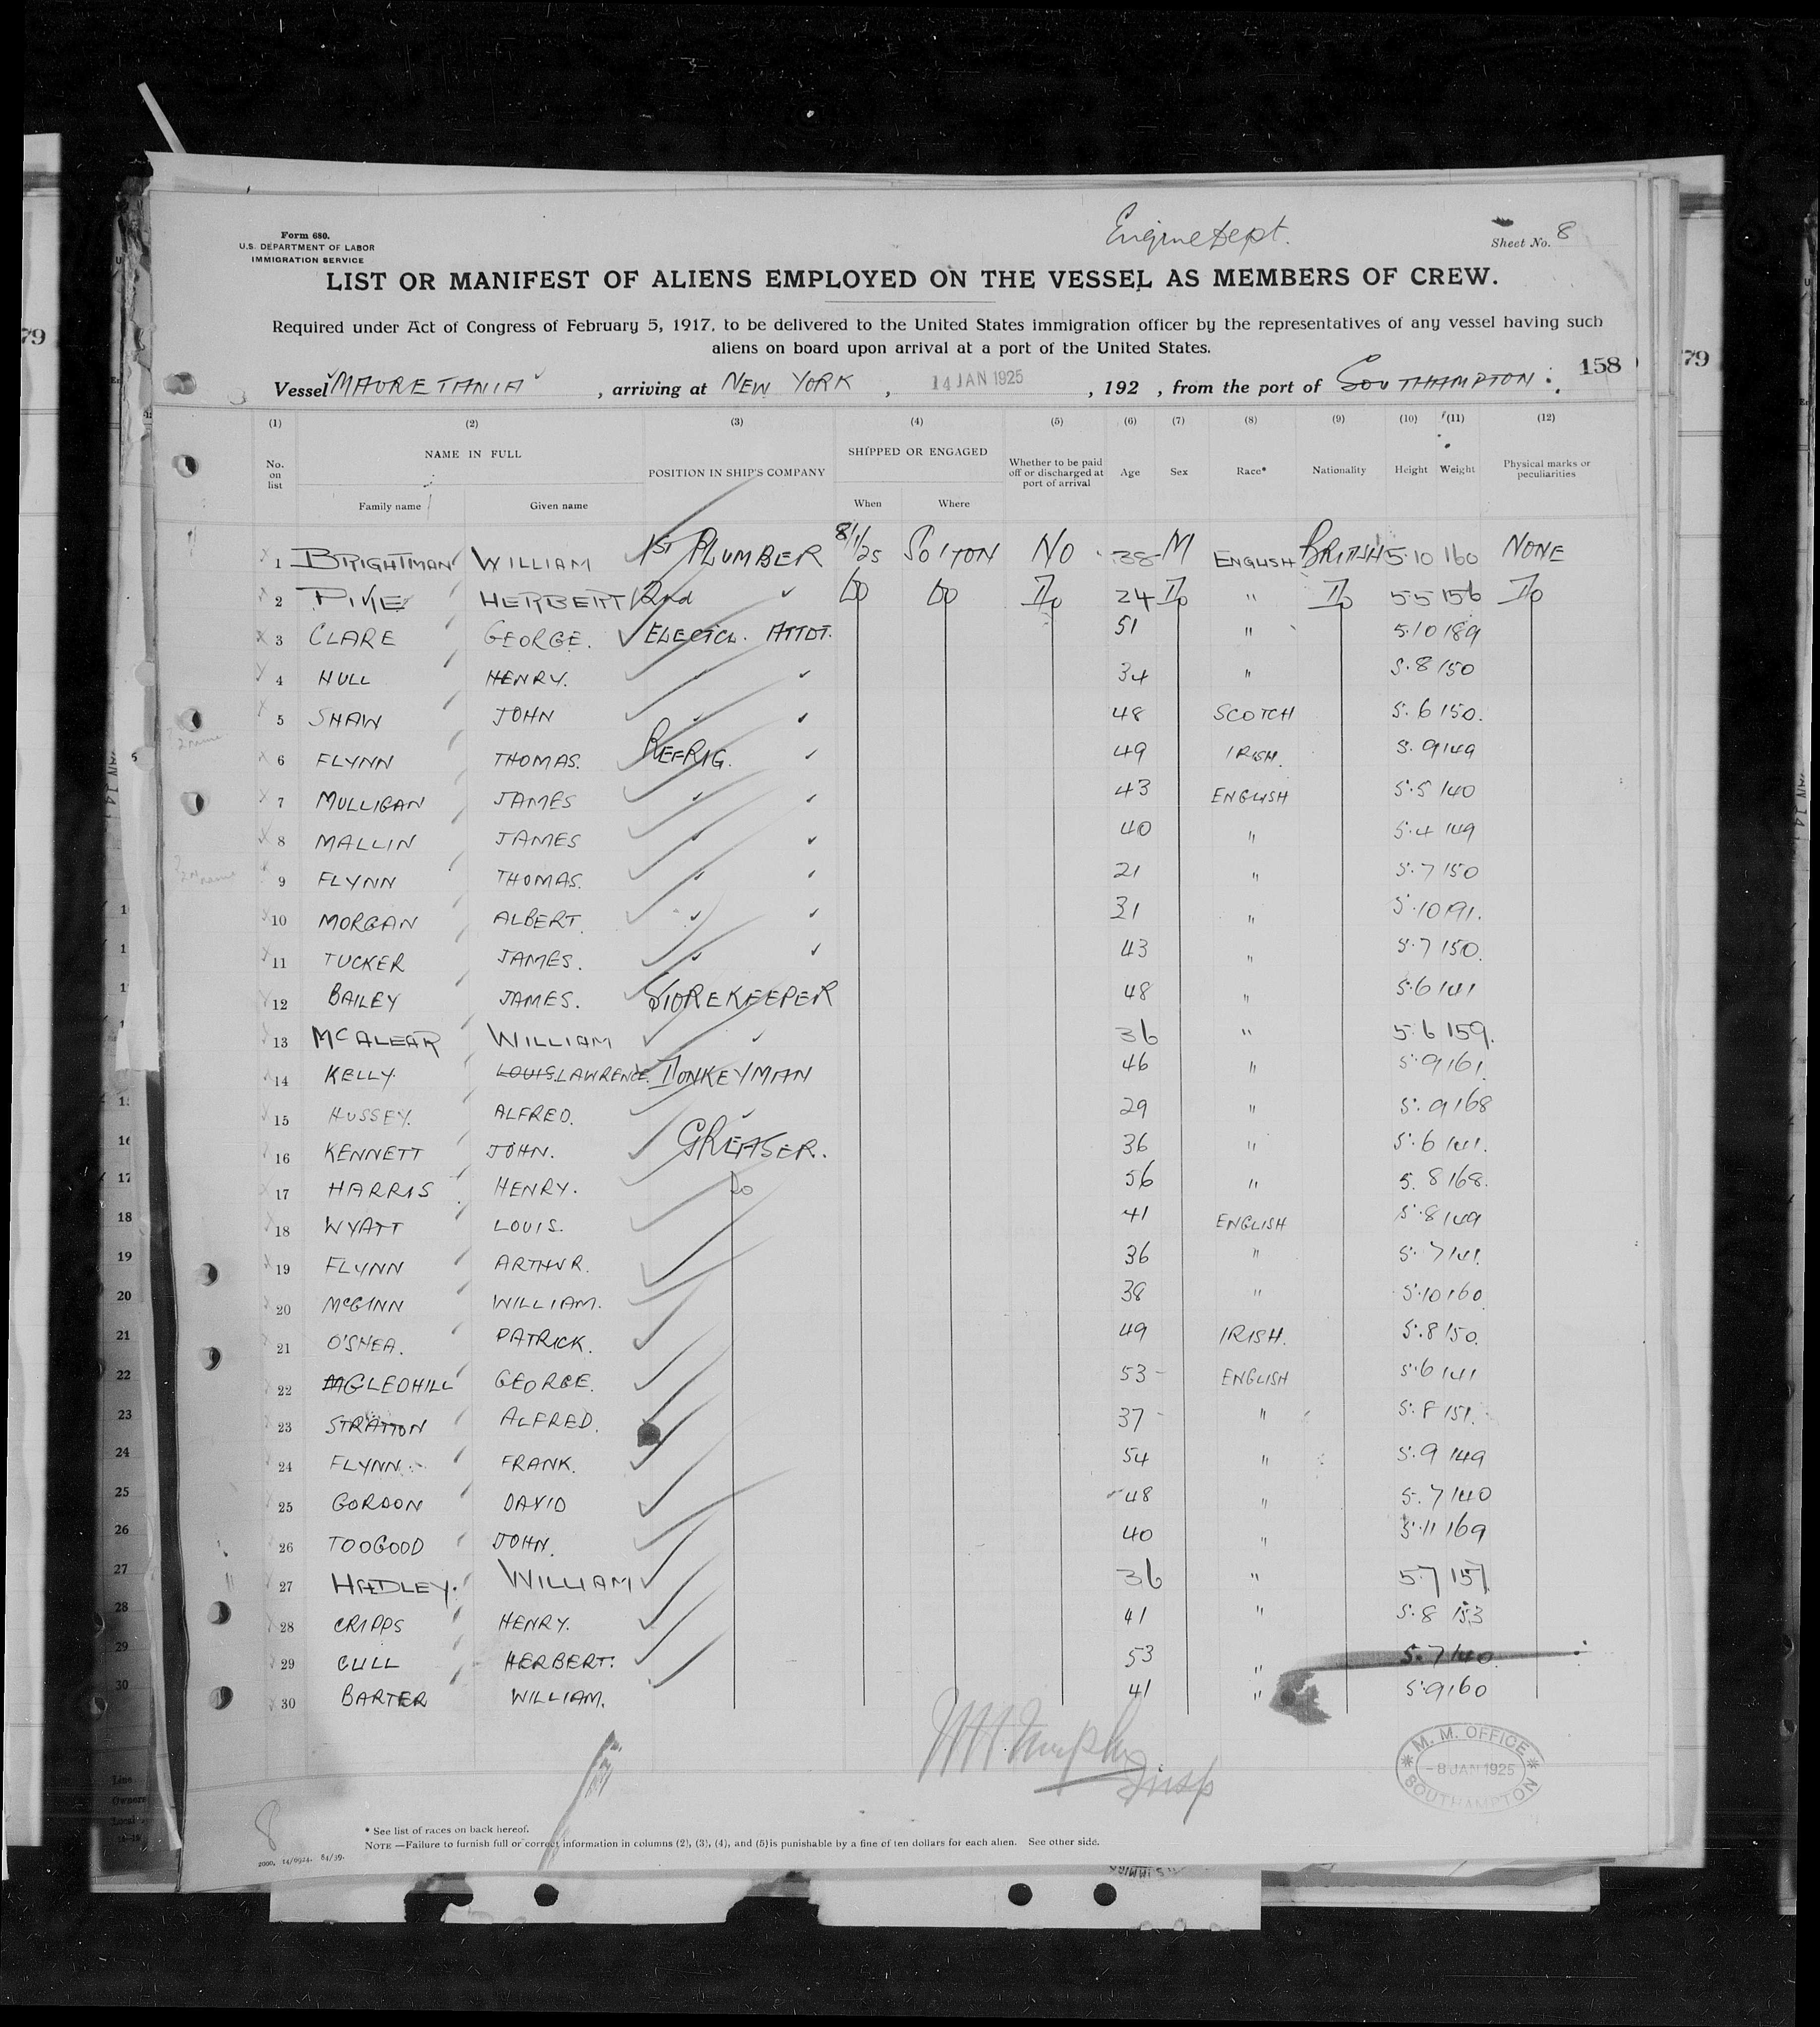 Form 680.
U.S. DEPARTMENT OF LABOR
IMMIGRATION SERVICE
Engine Dept.
Sheet No. 8
LIST OR MANIFEST OF ALIENS EMPLOYED ON THE VESSEL AS MEMBERS OF CREW.
Required under Act of Congress of February 5, 1917, to be delivered to the United States immigration officer by the representatives of any vessel having such
aliens on board upon arrival at a port of the United States.
158
Vessel MAURETANIA, arriving at NEW YORK, 14 JAN 1925, 192 , from the port of SOUTHAMPTON.
(1) (2) (3) (4) (5) (6) (7) (8) (9) (10) (11) (12)
No. on list NAME IN FULL POSITION IN SHIP'S COMPANY SHIPPED OR ENGAGED Whether to be paid off or discharged at port of arrival Age Sex Race* Nationality Height Weight Physical marks or peculiarities
Family name Given name When Where
1 BRIGHTMAN WILLIAM 1ST PLUMBER 8/1/25 SO'TON NO 38 M ENGLISH BRITISH 5.10 160 NONE
2 PIKE HERBERT 2nd ✓ DO DO DO 24 DO " DO 5.5 156 DO
3 CLARE GEORGE. ELECTCL. ATTDT. 51 " 5.10 189
4 HULL HENRY. ✓ ✓ 34 " 5.8 150
5 SHAW JOHN ✓ ✓ 48 SCOTCH 5.6 150.
6 FLYNN THOMAS. REFRIG. ✓ 49 IRISH. 5.9 149
7 MULLIGAN JAMES ✓ ✓ 43 ENGLISH 5.5 140
8 MALLIN JAMES ✓ ✓ 40 " 5.4 149
9 FLYNN THOMAS. ✓ ✓ 21 " 5.7 150
10 MORGAN ALBERT. ✓ ✓ 31 " 5.10 191.
11 TUCKER JAMES. ✓ ✓ 43 " 5.7 150.
12 BAILEY JAMES. STOREKEEPER 48 " 5.6 141
13 MCALEAR WILLIAM ✓ 36 " 5.6 159.
14 KELLY. LOUIS. LAWRENCE. DONKEYMAN 46 " 5.9 161.
15 HUSSEY. ALFRED. ✓ 29 " 5.9 168
16 KENNETT JOHN. GREASER. 36 " 5.6 141.
17 HARRIS HENRY. DO 56 " 5.8 168.
18 WYATT LOUIS. 41 ENGLISH 5.8 149
19 FLYNN ARTHUR. 36 " 5.7 141.
20 McGINN WILLIAM. 38 " 5.10 160.
21 O'SHEA. PATRICK. 49 IRISH. 5.8 150.
22 GLEDHILL GEORGE. 53 ENGLISH 5.6 141
23 STRATTON ALFRED. 37 " 5.8 151.
24 FLYNN FRANK. 54 " 5.9 149
25 GORDON DAVID 48 " 5.7 140
26 TOOGOOD JOHN. 40 " 5.11 169
27 HADLEY. WILLIAM 36 " 5.7 157
28 CRIPPS HENRY. 41 " 5.8 153
29 CULL HERBERT. 53 " 5.7 140.
30 BARTER WILLIAM. 41 " 5.9 160
Insp
M. M. OFFICE
-8 JAN 1925
SOUTHAMPTON
8
* See list of races on back hereof.
NOTE—Failure to furnish full or correct information in columns (2), (3), (4), and (5) is punishable by a fine of ten dollars for each alien. See other side.